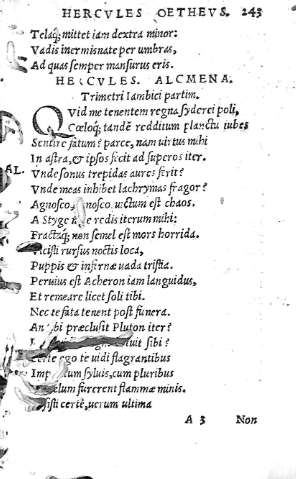 HERCVLES OETHEVS. 243
Telaq́; mittet iam dextra minor:
Vadis inermis nate per umbras,
Ad quas semper mansurus eris.
HERCVLES. ALCMENA.
Trimetri Iambici partim.
Quid me tenentem regna syderei poli,
Cœloq́; tandē redditum planctu iubes
Sentire fatum? parce, nam uirtus mihi
In astra, & ipsos fecit ad superos iter.
AL. Vnde sonus trepidas aures ferit?
Vnde meas inhibet lachrymas fragor?
Agnosco, agnosco, uictum est chaos.
A Styge redis iterum mihi:
Fractaq́; non semel est mors horrida.
Vicisti rursus noctis loca,
Puppis & infernæ uada tristia.
Peruius est Acheron iam languidus,
Et remeare licet soli tibi.
Nec te fata tenent post funera.
An tibi præclusit Pluton iter?
sibi?
Certe ego te uidi flagrantibus
syluis, cum pluribus
furerent flammæ minis.
certè, uerum ultima
A 3 Non